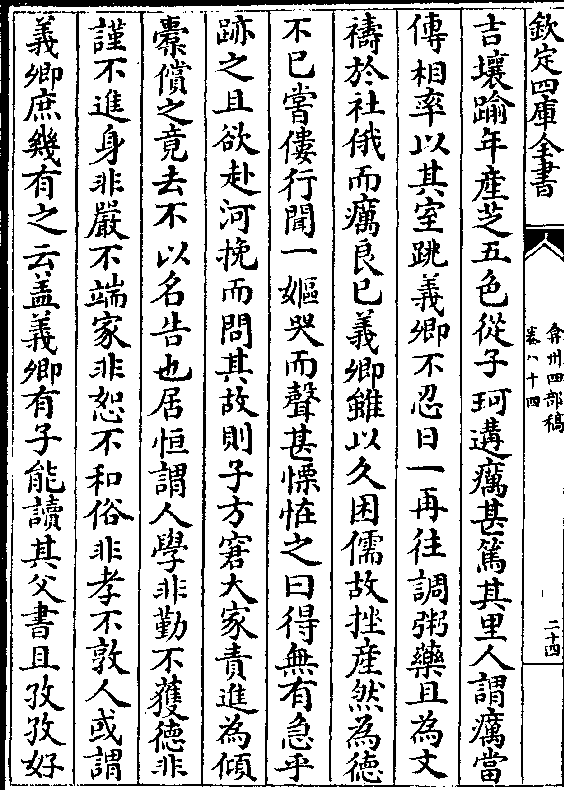 欽定四庫全書
弇州四部稿
卷八十四
二十四
吉壤踰年產芝五色從子珂遘癘甚篤其里人謂癘當
傳相率以其室跳義卿不忍日一再往調粥藥且為文
禱於社俄而癘良已義卿雖以久困儒故挫產然為德
不已嘗僂行聞一嫗哭而聲甚慄恠之曰得無有急乎
跡之且欲赴河挽而問其故則子方窘大家責進為傾
橐償之竟去不以名告也居恒謂人學非勤不獲德非
謹不進身非嚴不端家非恕不和俗非孝不敦人或謂
義卿庶幾有之云盖義卿有子能讀其父書且孜孜好